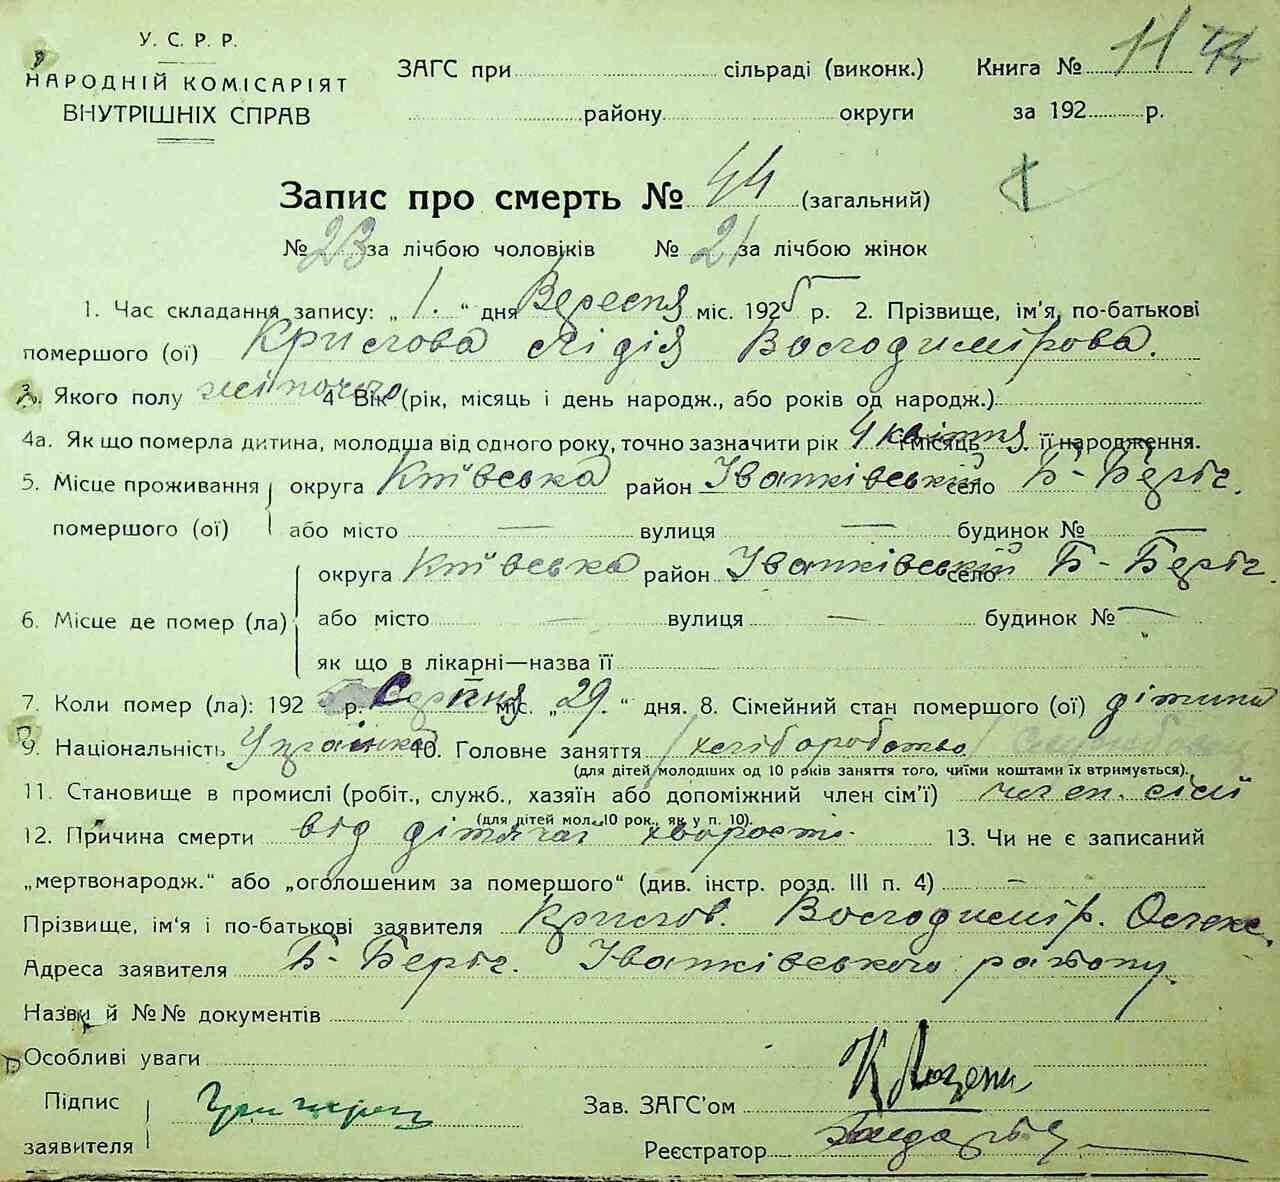 У. С. Р. Р.
НАРОДНІЙ КОМІСАРІЯТ
ВНУТРІШНІХ СПРАВ
ЗАГС при сільраді (виконк.)
району округи
Книга № 11 44
за 192 р.
Запис про смерть № 44 (загальний)
№ 23 за лічбою чоловіків № 21 за лічбою жінок
1. Час складання запису: „ 1. “ дня Вересня міс. 1925 р. 2. Прізвище, ім'я, по-батькові
помершого (ої) Лідія Володимірова.
3. Якого полу жіночого 4 Вік (рік, місяць і день народж., або років од народж.)
4а. Як що померла дитина, молодша від одного року, точно зазначити рік 4 квітня і місяць її народження.
5. Місце проживання округа Київська район Іванківський село Б-Беріч.
помершого (ої) або місто — вулиця — будинок № —
округа Київська район Іванківський село Б-Беріч.
6. Місце де помер (ла) або місто — вулиця — будинок № —
як що в лікарні—назва її
7. Коли помер (ла): 192 р. Серпня міс. „ 29. “ дня. 8. Сімейний стан помершого (ої) дітина
9. Національність Українка 10. Головне заняття / хліборобство /
(для дітей молодших од 10 років заняття того, чиїми коштами їх втримується).
11. Становище в промислі (робіт., служб., хазяїн або допоміжний член сім'ї) член. сімї
(для дітей мол. 10 рок., як у п. 10).
12. Причина смерти від дітячаї хворості. 13. Чи не є записаний
„мертвонародж.“ або „оголошеним за помершого“ (див. інстр. розд. III п. 4) —
Прізвище, ім‘я і по-батькові заявителя Володимір. Олекс.
Адреса заявителя Б-Беріч. Іванківського району.
Назви й №№ документів
Особливі уваги
Підпис
заявителя
Зав. ЗАГС'ом
Реєстратор